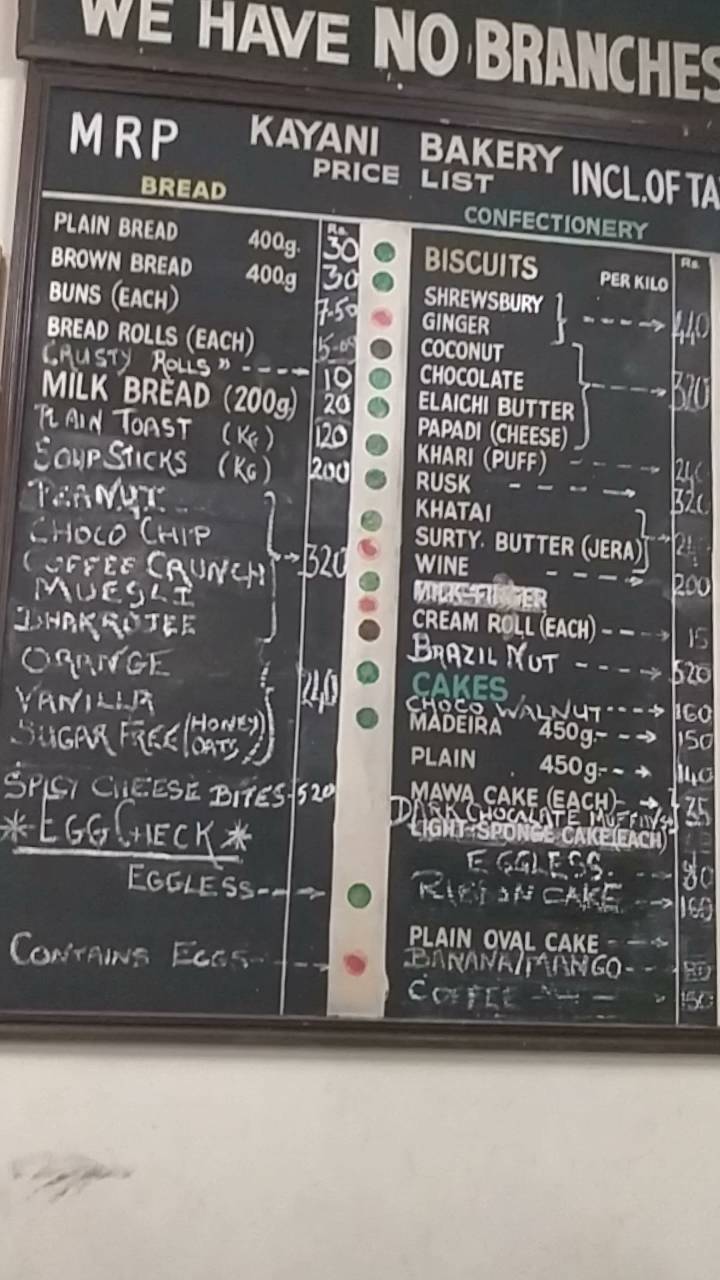 WE HAVE NO BRANCHES
MRP KAYANI BAKERY
PRICE LIST INCL.OF TA
BREAD
Rs.
PLAIN BREAD 400g. 30
BROWN BREAD 400g 30
BUNS (EACH) 7-50
BREAD ROLLS (EACH)
CRUSTY ROLLS " ---- 10
MILK BREAD (200g) 20
PLAIN TOAST (KG) 120
SOUP STICKS (KG) 200
PEANUT
CHOCO CHIP
COFFEE CRUNCH 320
MUESLI
ORANGE
VANILLA 240
SUGAR FREE (HONEY
OATS)
SPICY CHEESE BITES-520
*EGG CHECK*
EGGLESS--
CONTAINS EGGS--
CONFECTIONERY
Rs.
BISCUITS PER KILO
SHREWSBURY
GINGER 440
COCONUT
CHOCOLATE 320
ELAICHI BUTTER
PAPADI (CHEESE)
KHARI (PUFF)
RUSK 320
KHATAI
SURTY. BUTTER (JERA)
WINE 200
MILK FINGER
CREAM ROLL (EACH) -- 15
BRAZIL NUT ---- 520
CAKES
CHOCO WALNUT--- 160
MADEIRA 450g.-- 150
PLAIN 450g-- 140
MAWA CAKE (EACH)-
DARK CHOCOLATE MUFFINS
LIGHT SPONGE CAKE(EACH)
EGGLESS.
RIBBON CAKE 160
PLAIN OVAL CAKE --
BANANA/MANGO--
COFFEE